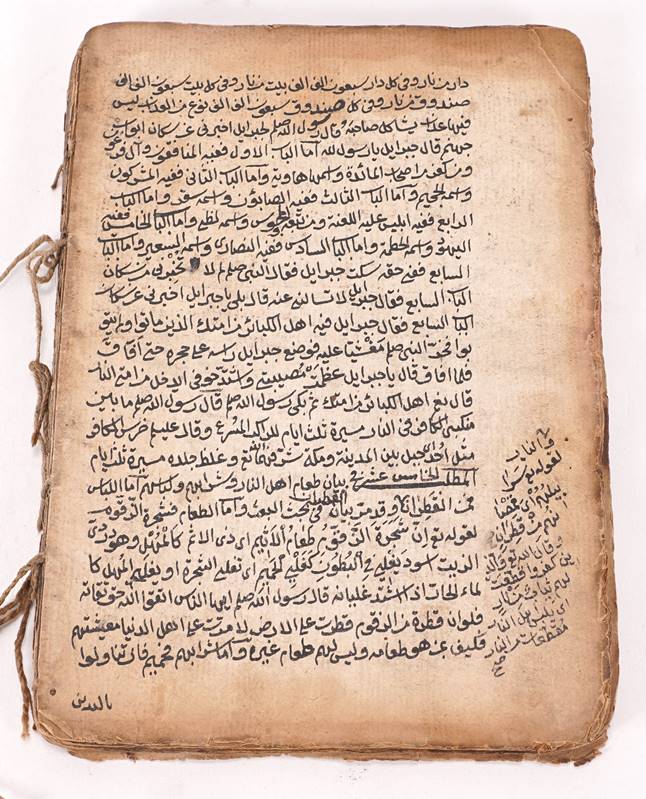 دار من نار وفي كل دار سبعون الف الف بيت من نار وفي كل بيت سبعون الف الف
صندوق من نار وفي كل صندوق سبعون الف الف نوع من العذاب ليس
فيها عذاب يشاكل صاحبه وقال رسول الله صلم لجبرايل اخبرني عن سكان ابواب
جهنم قال جبرايل يا رسول الله اما الباب الاول ففيه المنافقون وآل فرعون
ومن كفر من اصحاب المائدة واسمها هاوية واما الباب الثاني ففيه المشركون
واسمه الجحيم واما الباب الثالث ففيه الصابئون واسمه سقر واما الباب
الرابع ففيه ابليس عليه اللعنة ومن تبعه والمجوس واسمه لظى واما الباب الخامس ففيه
اليهود واسمه الحطمة واما الباب السادس ففيه النصارى واسمه السعير واما الباب
السابع ففي حقه سكت جبرايل فقال النبي صلم لم لا تخبرني من سكان
الباب السابع فقال جبرايل لم تسالني عنه قال بلى يا جبرايل اخبرني عن سكان
الباب السابع فقال جبرايل فيه اهل الكبائر من امتك الذين ماتوا ولم يتو
بوا فخر النبي صلم مغشيا عليه فوضع جبرايل راسه على حجره حتى افاق
فلما افاق قال يا جبرايل عظمت مصيبتي واشتد خوفي ادخل من امتي النار
قال نعم اهل الكبائر من امتك ثم بكى رسول الله صلم قال رسول الله صلم ما بين
منكبي الكافر في النار مسيرة ثلث ايام للراكب المسرع وقال عليم ضرس الكافر
مثل احد جبل بين المدينة ومكة وغلظ جلده مسيرة ثلث ايام
المطلب الخامس عشر في بيان طعام اهل النار وشرابهم ولباسهم اما اللباس
فمن القطران وقد مر بيان القطران في بحث البعث واما الطعام فشجرة الزقوم
لقوله تع ان شجرة الزقوم طعام الاثيم اي ذي الاثم كالمهل وهو دردي
الزيت اسود يغلي في البطون كغلي الحميم اي تغلي الشجرة او يغلي المهل كا
لماء الحار اذا اشتد غليانه قال رسول الله صلم ايها الناس اتقوا الله حق تقاته
فلو ان قطرة من الزقوم قطرت على الارض لامرت على اهل الدنيا معيشتهم
فكيف بمن هو طعامه وليس لهم طعام غيره واما شرابهم فحميم
لقوله تع
اي
من قطران
وقال الله تع فالذين
كفروا قطعت
لهم ثياب من نار
مقطعات من النار
صح